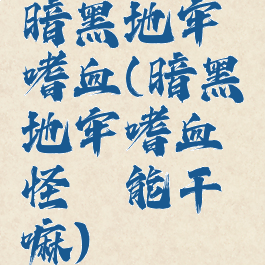 暗黑地牢
嗜血(暗黑
地牢嗜血
怪 能干
嘛)